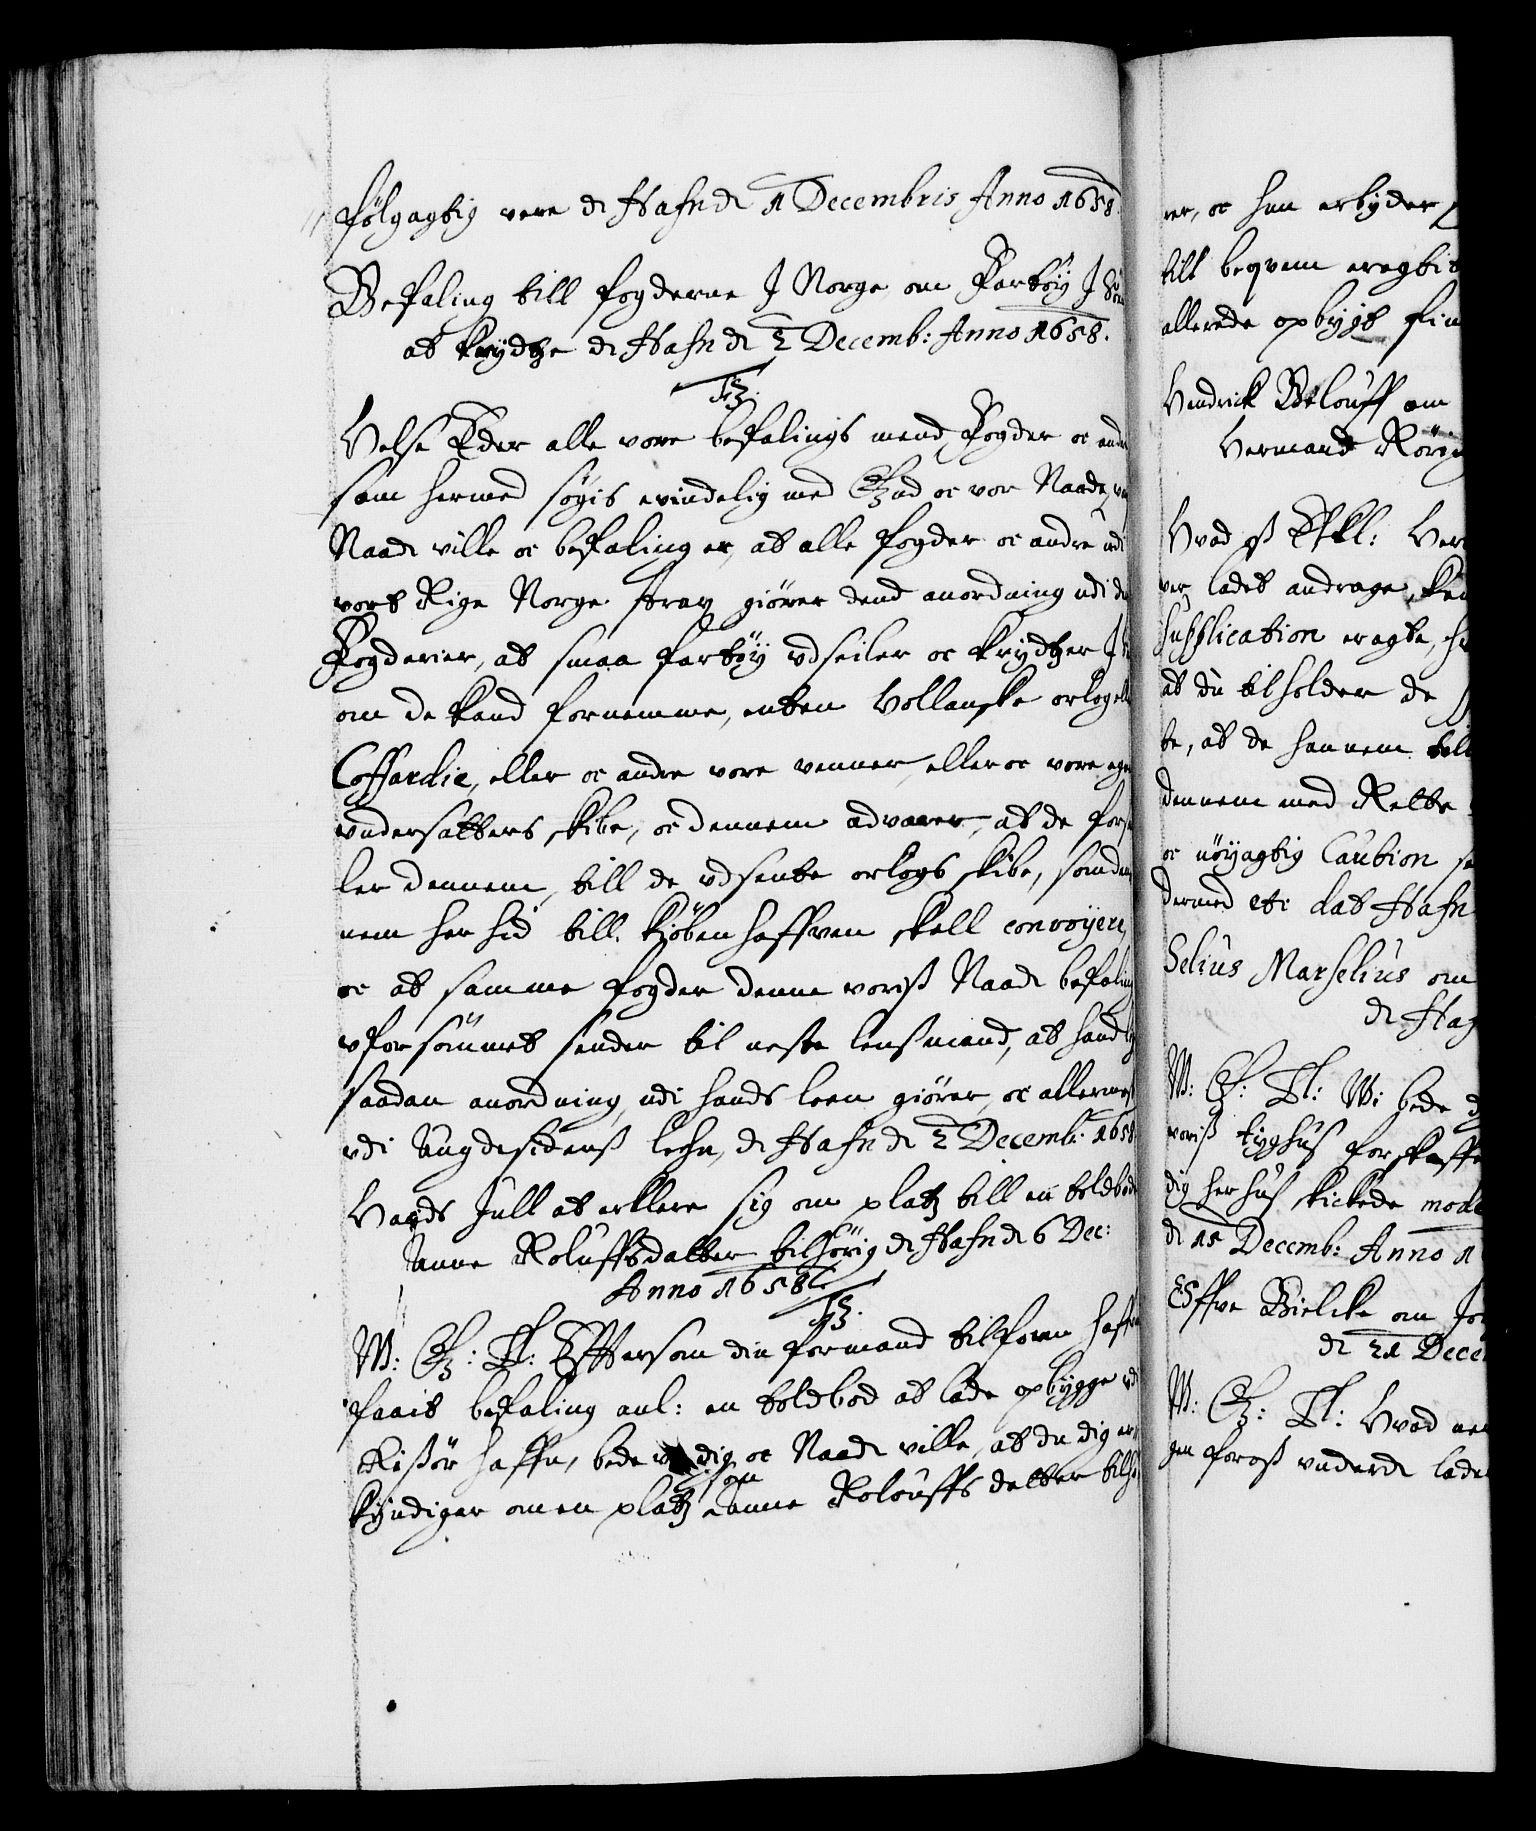 følgagtig vere d: Hafn d: 1 Decembris Anno 1658.
Befaling till fogderne J Norge om Fartøy J
at krydtze d: Hafn d: 2 Decemb: Anno 1658.
F3.
Helse Eder alle vore befalings mend, Fogder oc andre
som hermed søgis evindelig med Gud oc vor Naade, vor
Naad: ville oc befaling er, at alle fogder oc andre udi
vort Rige Norge strax giører dend anordning udi
Fogderier, at smaa fartøy udseiler oc krydtzer J
om de kand fornemme, enten Hollanske orlog eller
Coffardie, eller oc andre vore venner, eller oc vore egne
undersatters skibe, oc dennem advarer, at de
ler dennem, till de udsente orlogs skibe, som den
nem her hid till Kiøbenhaffven skall convoyere,
oc at samme fogder denne voriß Naad: befaling
uforsømmet sender til neste lensmand, at hand
saadan anordning udi hands leen giører, oc allermest
udi Augdesidens lehn, d: Hafn d: 2 Decemb: 1658
Vards Juell at erklere sig om platz till en boldbod
Anne Roluffsdatter tilhørig d: Hafn d: 6 Dec:
Anno 1658
F3.
M: G: T: Efftersom din formand tilforn haffver
faait befaling anl: en boldbod at lade opbygge udi
Rißør haffn, bede dig oc Naad: ville, at du dig er
kyndiger om en platz som Anne Roluffs datter
rer, oc hun erbyder
till beqvem eragtis
allerede opbygt fin
Hendrick Beloùff om
Hermand Røri
Hvad oß Elskl: Her
ver ladet andrage,
supplication eragte,
at du tilholder de
te, at de hannem
dennem med Rette
oc nøyagtig Caution
dermed etc dat Hafn
Selius Marselius om
d: Haf
M: G: T: Wi bede
voriß tyghuß forskaffe
dig her huß skickede mode
d: 15 Decemb: Anno 1
Offve Bielcke om
d: 21 Dece
M: G: T: Hvad
gen for oß underd: lade